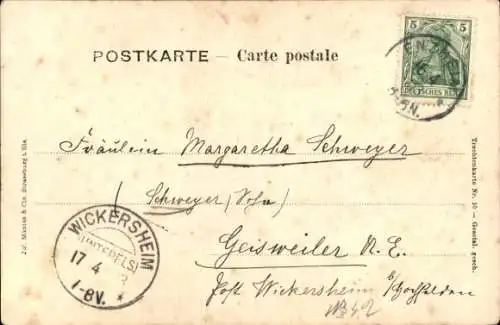 POSTKARTE – Carte postale
5 5
DEUTSCHES REICH
Fräulein Margaretha Schweyer
Schweyer (Sohn)
Geisweiler N. E.
Post Wickersheim b/Hochfelden
WICKERSHEIM
(UNTERELS)
17 4
1-8V. *
Jul. Manias & Cie. Strassburg i. Els.
Trachtenkarte Nr. 10 – Gesetzl. gesch.